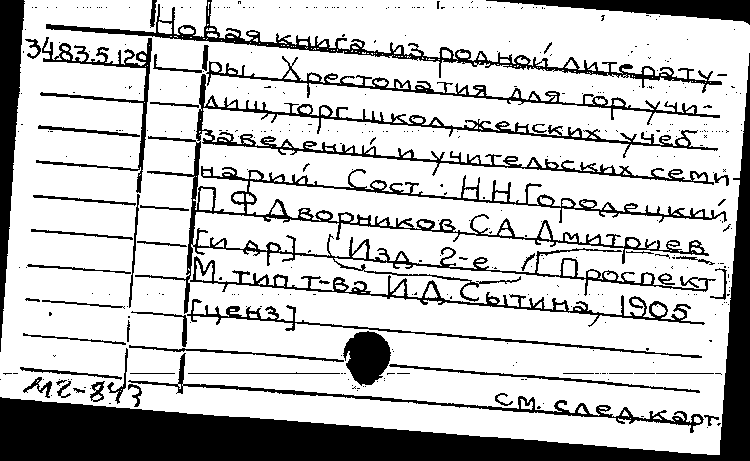 Новая книга из родной литерату-
3483.5.129 ры. Хрестоматия для гор. учи-
лищ, торг. школ, женских учеб.
заведений и учительских семи-
нарий. Сост.: Н.Н. Городецкий,
П.Ф. Дворников, С.А. Дмитриев
[и др]. (Изд. 2-е. ([Проспект]
М., тип. т-ва И.Д. Сытина, 1905
[ценз]
М2-843
см. след. карт.